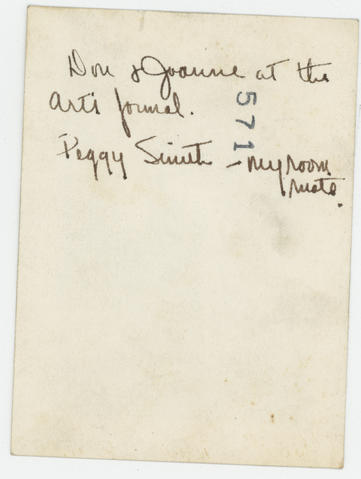 Don & Joanne at the
Arts formal.
Peggy Smith - my room
mate.
571